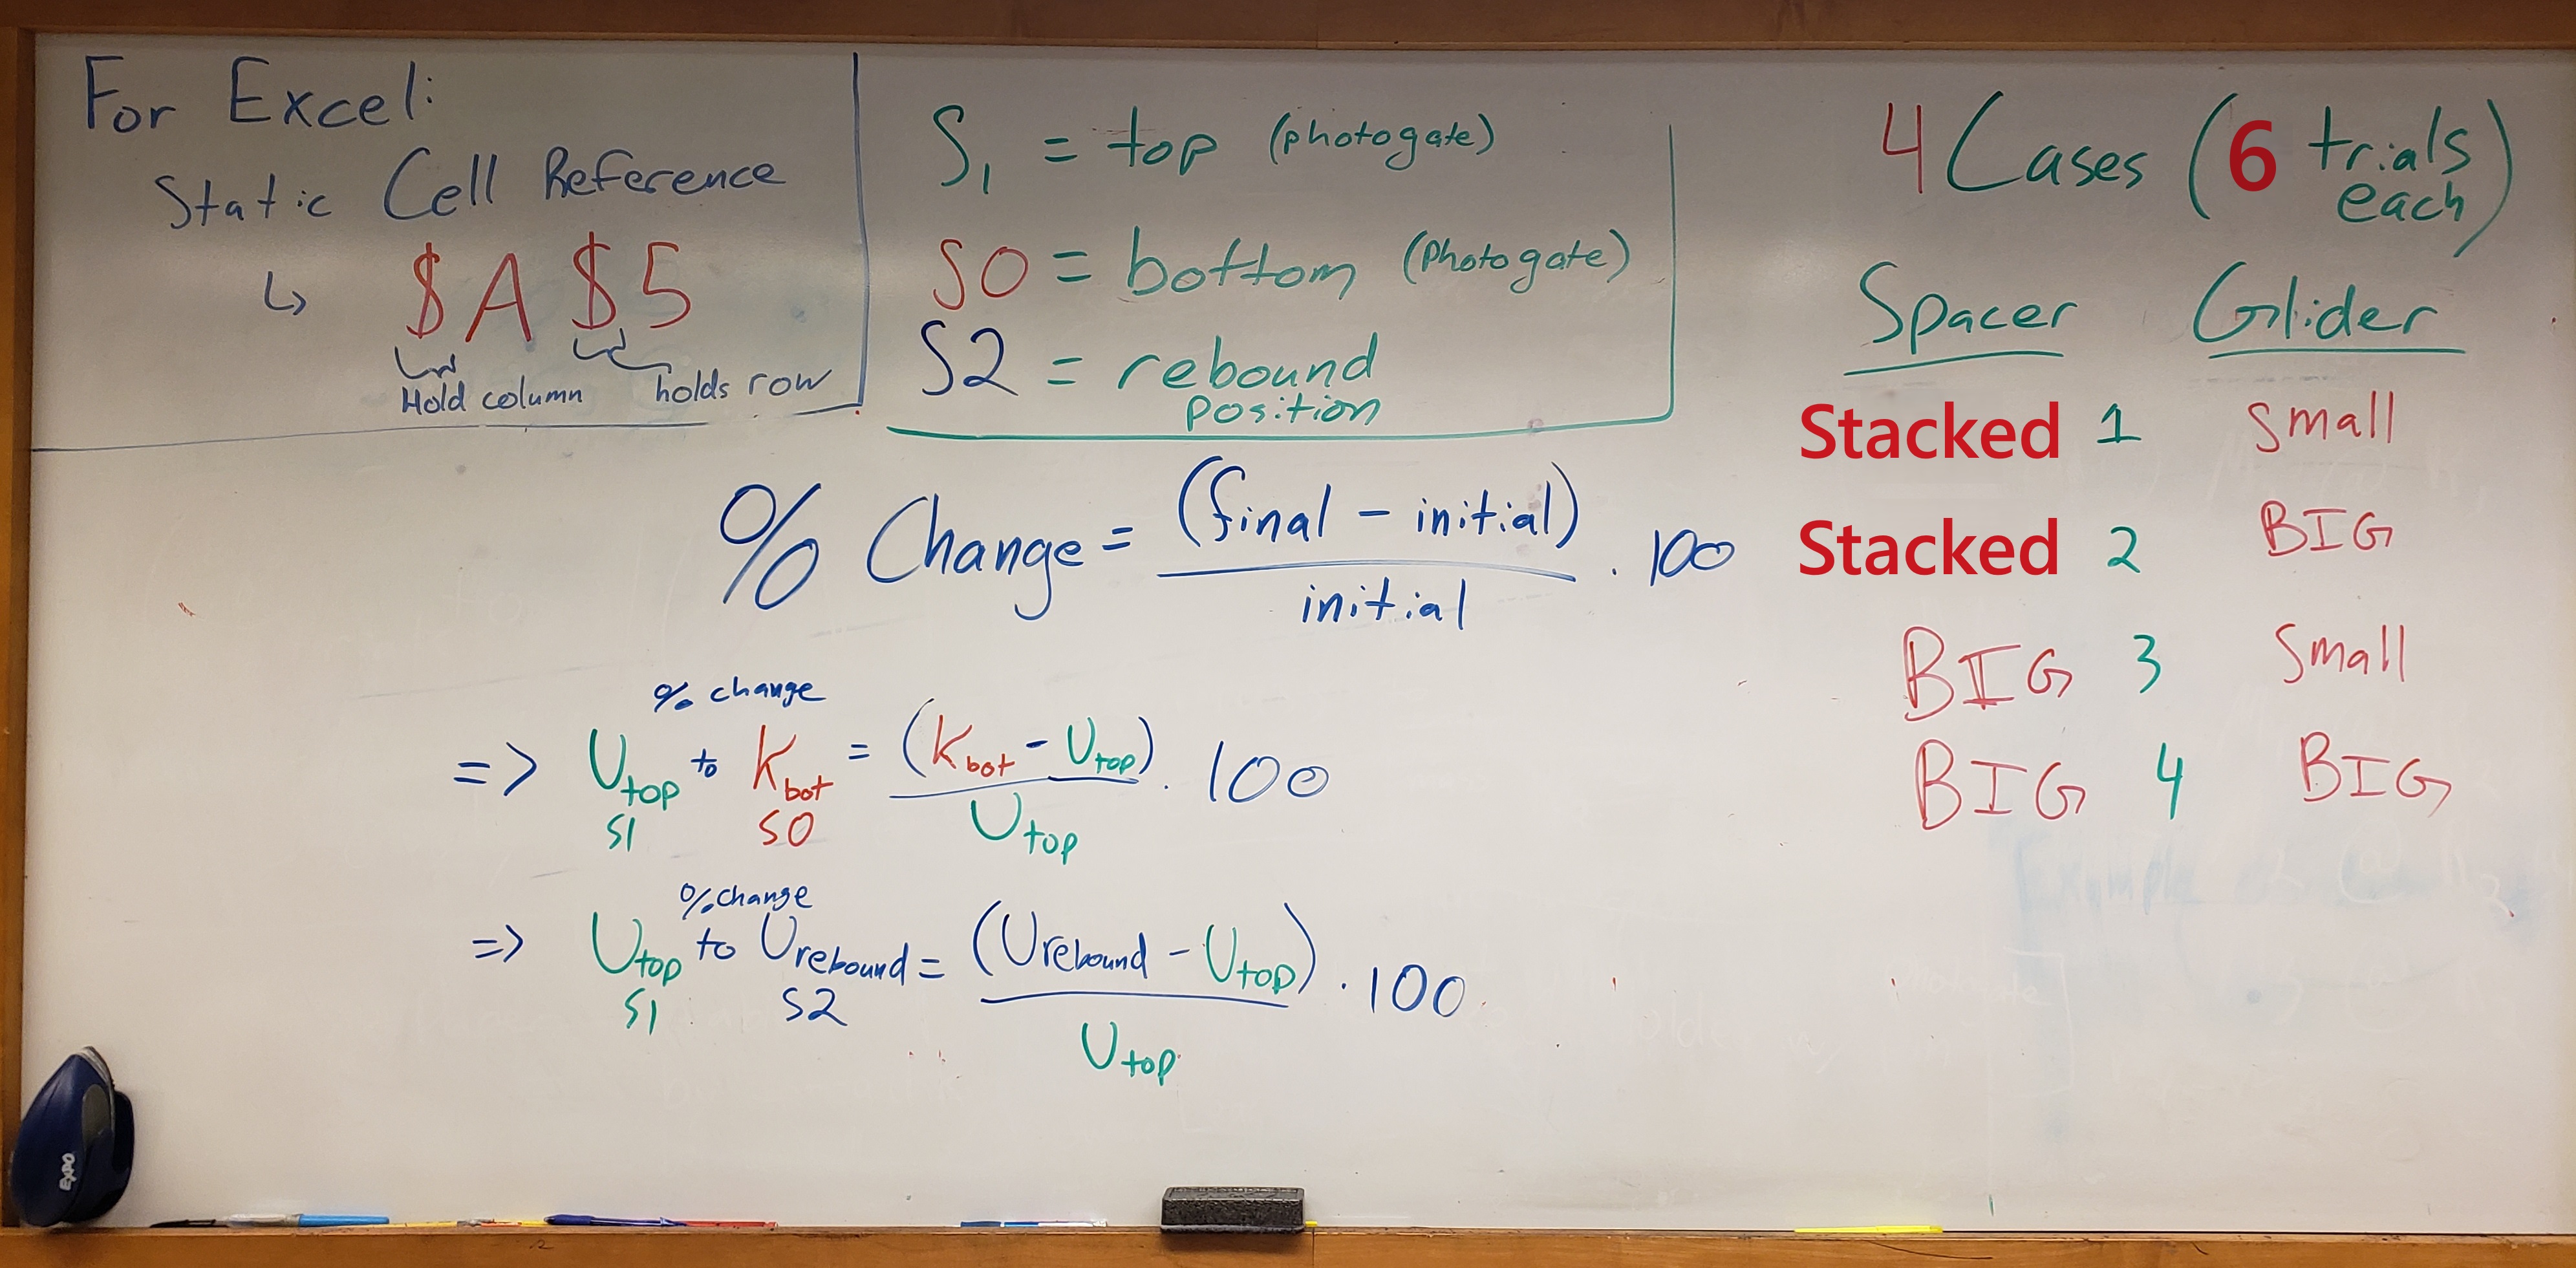 For Excel:
Static Cell Reference
↳ $A $5
Hold column holds row
S₁ = top (photogate)
S0 = bottom (Photogate)
S2 = rebound
position
4 Cases (6 trials
each)
Spacer Glider
Stacked 1 small
Stacked 2 BIG
BIG 3 small
BIG 4 BIG
% Change = (final - initial) / initial · 100
% change
=> U_top to K_bot = (K_bot - U_top) / U_top · 100
S1 S0
% change
=> U_top to U_rebound = (U_rebound - U_top) / U_top · 100
S1 S2
EXPO